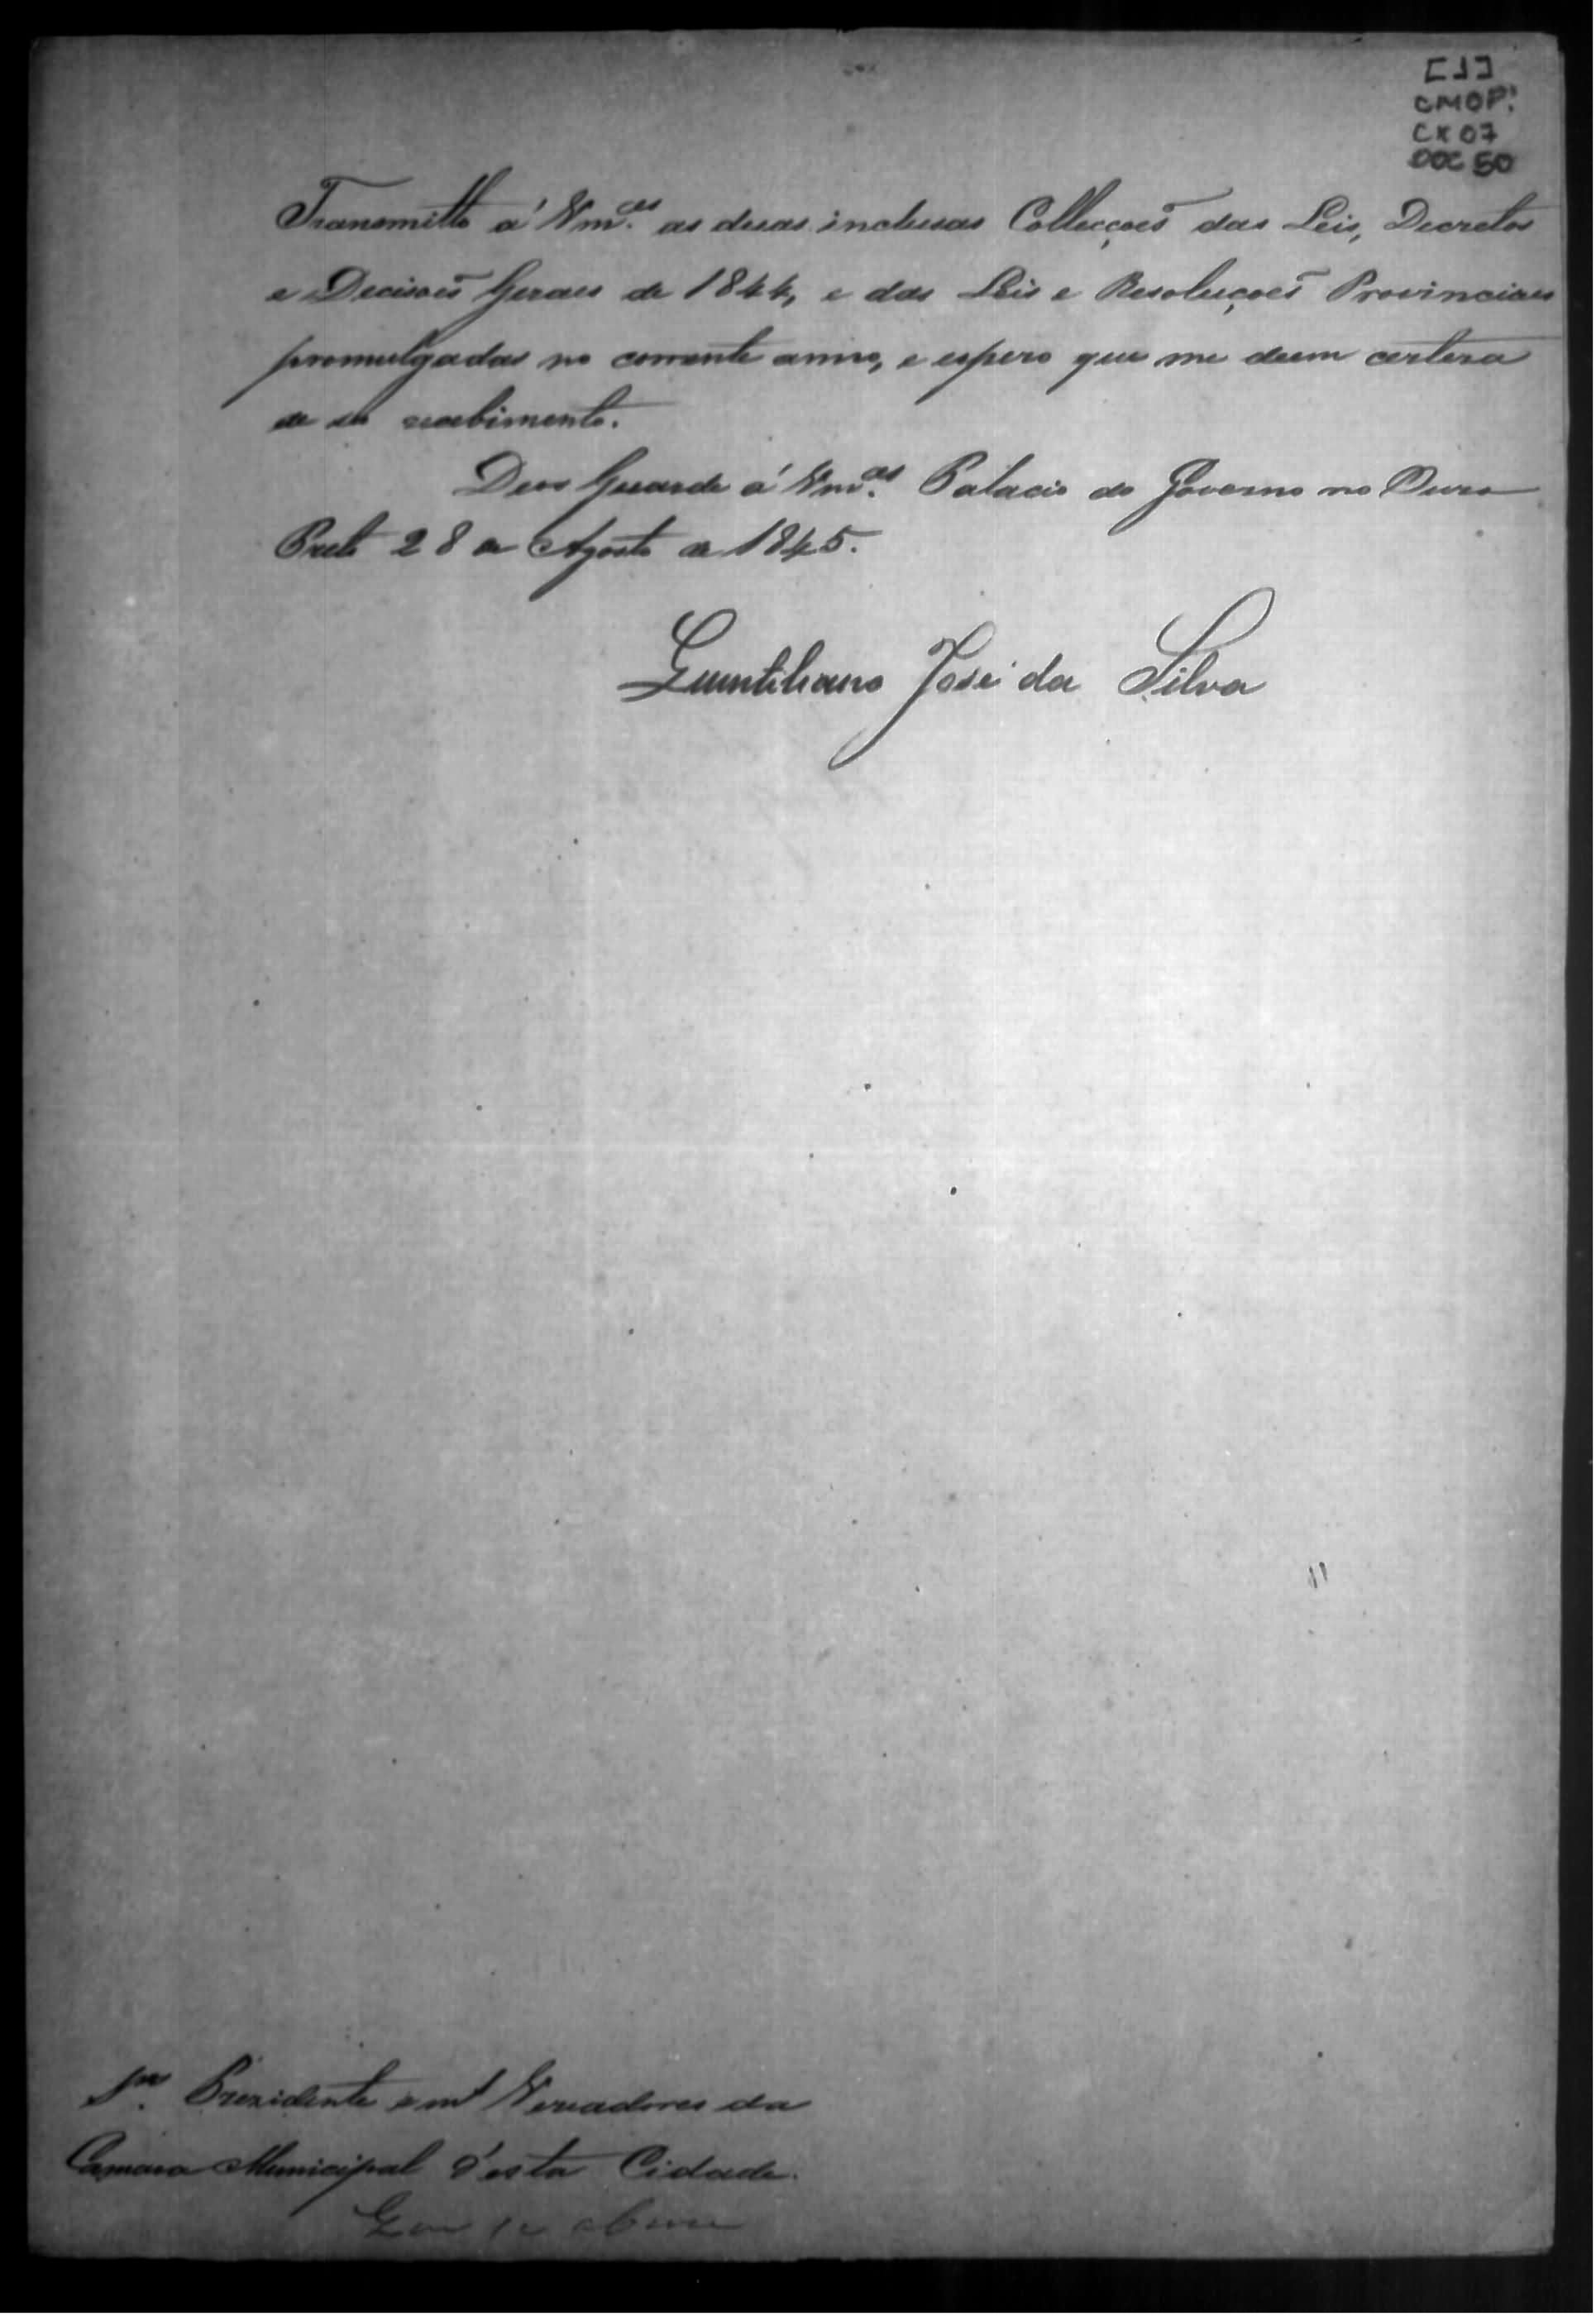 [1]
CMOP!
CX 07
DOC 50
Transmitto á Vm.ces as duas inclusas Collecçoẽs das Leis, Decretos
e Decisoẽs Geraes de 1844, e das Leis e Resoluçoẽs Provinciaes
promulgadas no corrente anno, e espero que me deem certesa
de seu recebimento.
Deos Guarde á Vm.ces Palacio do Governo no Ouro
Preto 28 de Agosto de 1845.
Quintiliano José da Silva
Snr. Prezidente e Vereadores da
Camara Municipal d'esta Cidade.